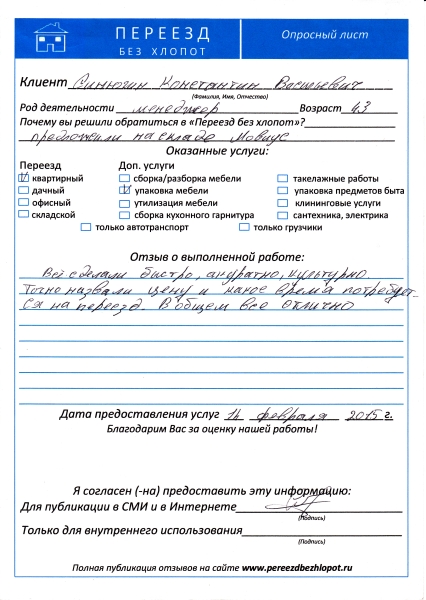 ПЕРЕЕЗД
БЕЗ ХЛОПОТ
Опросный лист
Клиент Синюгин Константин Васильевич
(Фамилия, Имя, Отчество)
Род деятельности менеджер Возраст 43
Почему вы решили обратиться в «Переезд без хлопот»?
предложили на складе Мовиус
Оказанные услуги:
Переезд Доп. услуги
квартирный сборка/разборка мебели такелажные работы
дачный упаковка мебели упаковка предметов быта
офисный утилизация мебели клининговые услуги
складской сборка кухонного гарнитура сантехника, электрика
только автотранспорт только грузчики
Отзыв о выполненной работе:
Всё сделали быстро, аккуратно, культурно.
Точно назвали цену и какое время потребует-
ся на переезд. В общем все отлично
Дата предоставления услуг 14 февраля 2015 г.
Благодарим Вас за оценку нашей работы!
Я согласен (-на) предоставить эту информацию:
Для публикации в СМИ и в Интернете
(Подпись)
Только для внутреннего использования
(Подпись)
Полная публикация отзывов на сайте www.pereezdbezhlopot.ru